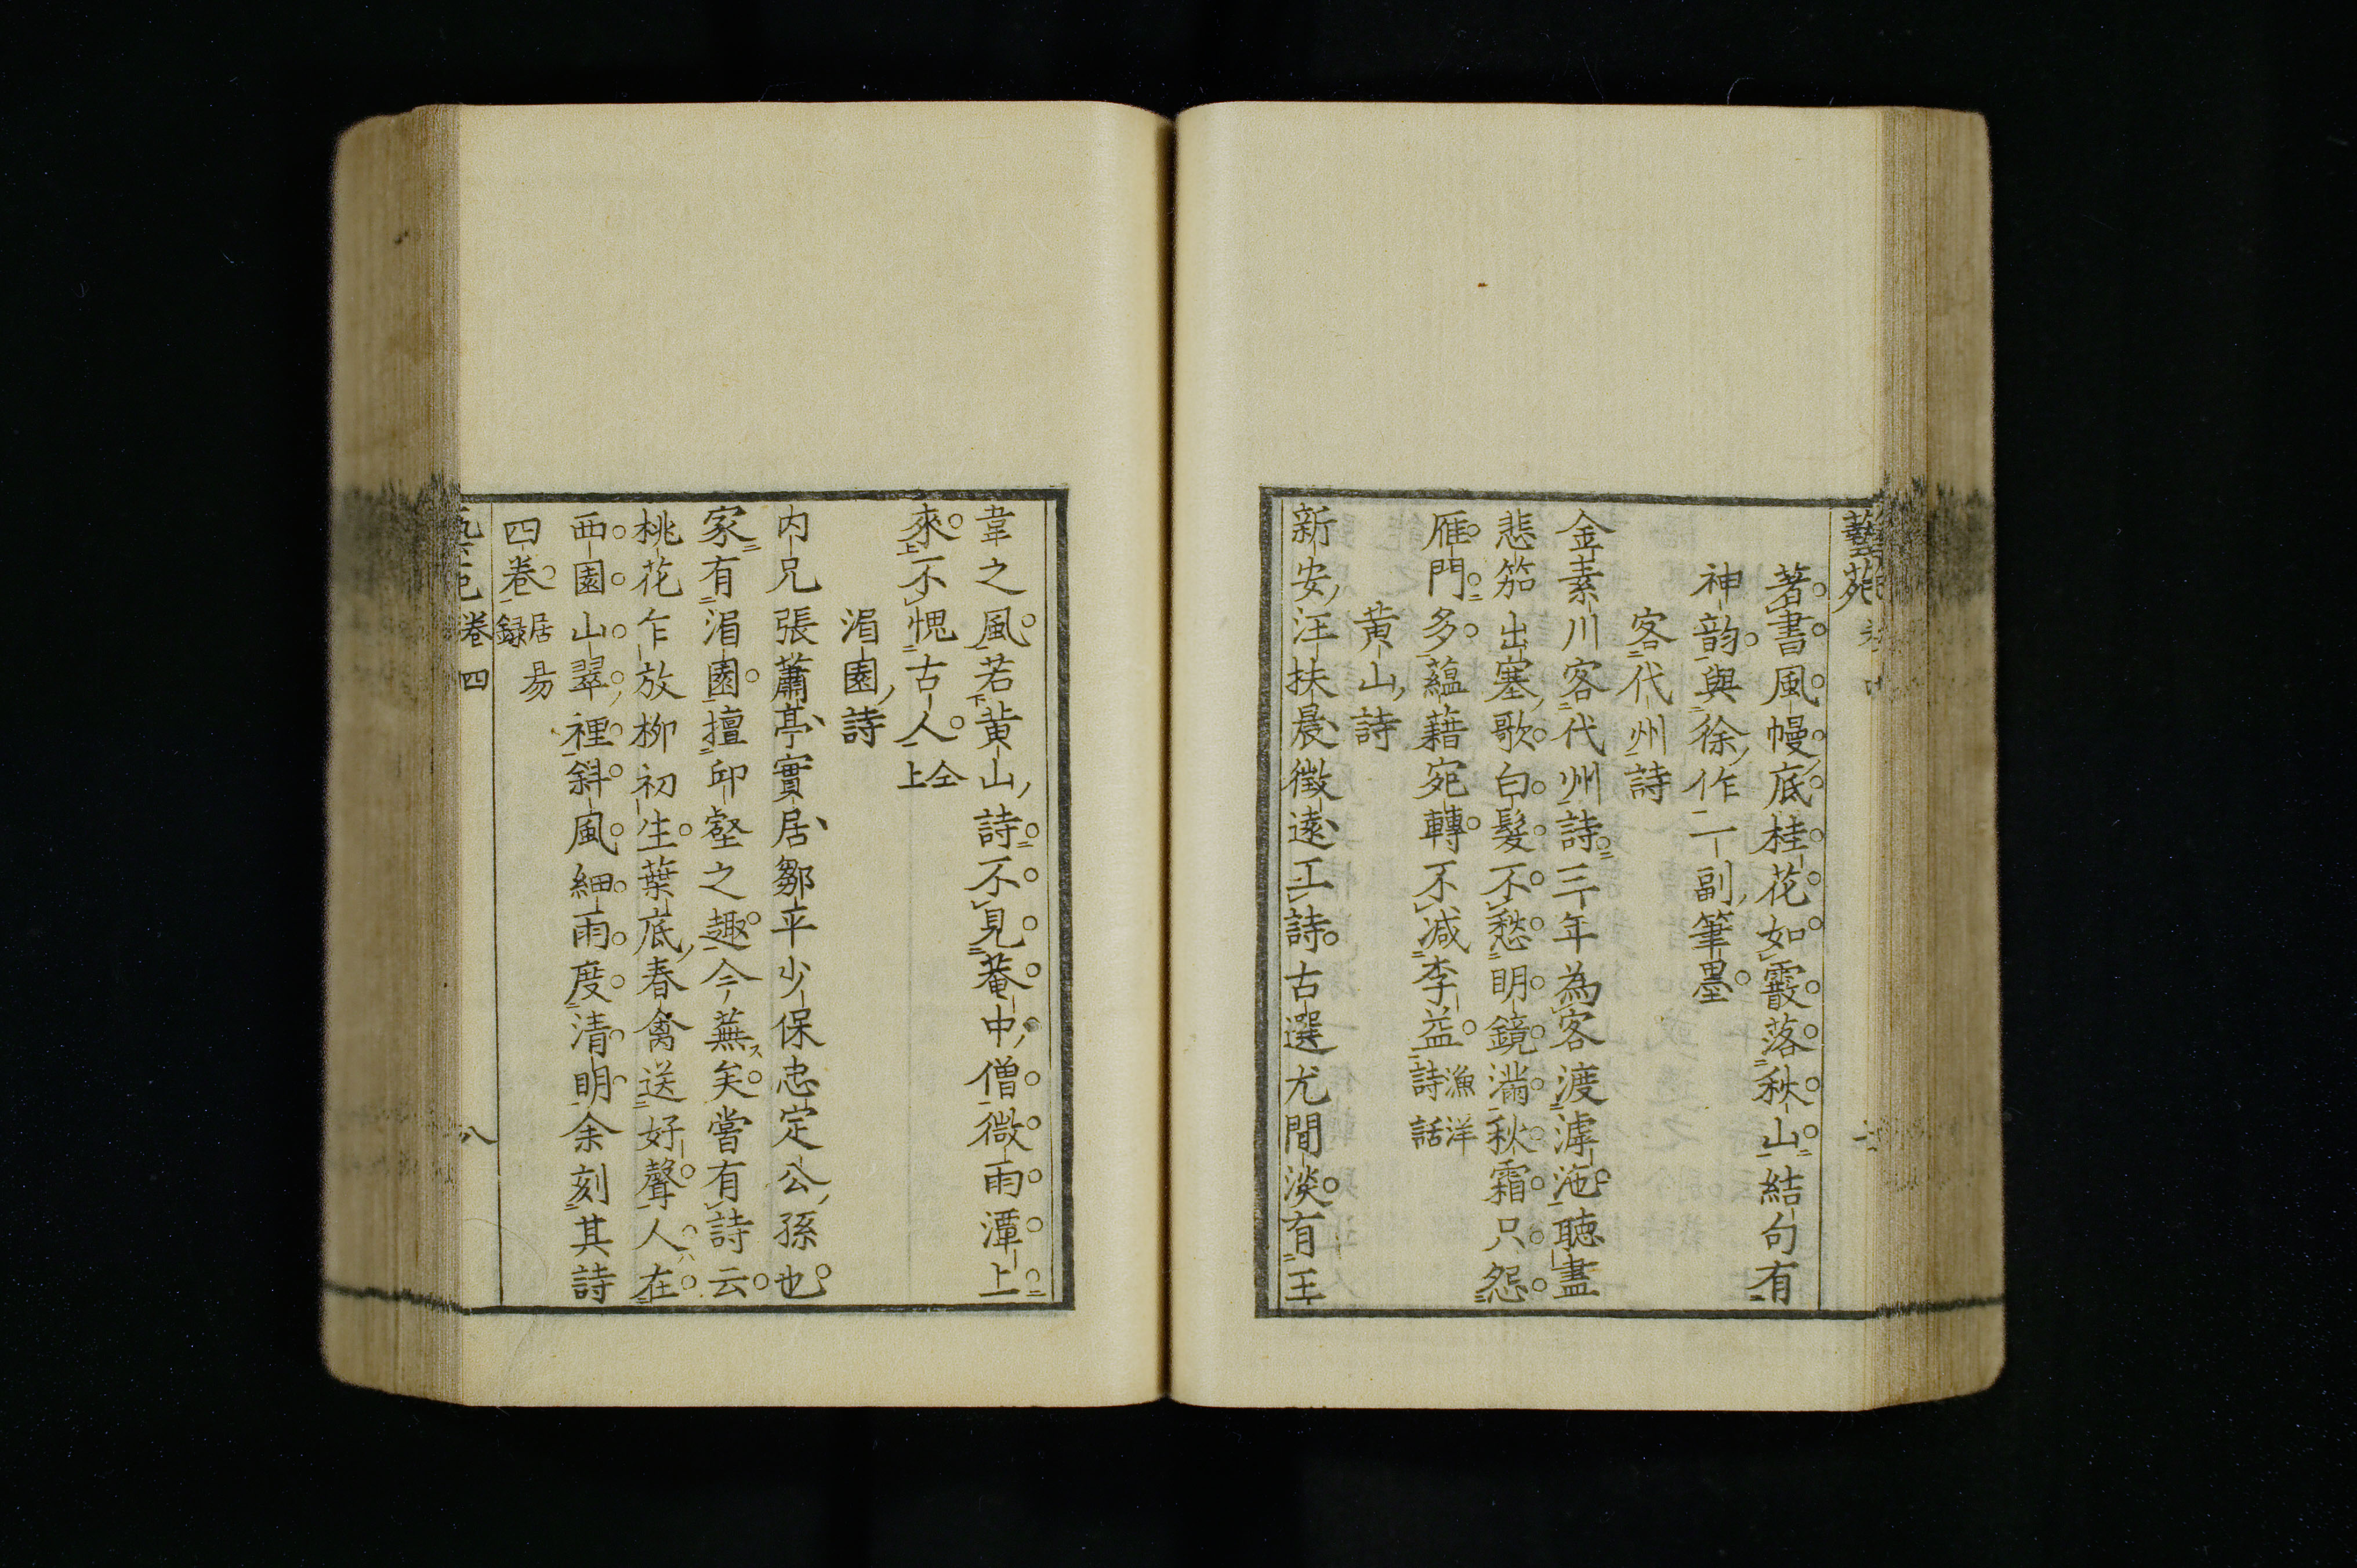 藝苑
著書風幔底桂花如霰落秋山結句有
神韵與徐作一副筆墨
客代州詩
金素川客代州詩三年為客渡滹沲聴盡
悲笳出塞歌白髮不愁明鏡滿秋霜只怨
雁門多蘊藉宛轉不减李益漁洋詩話
黄山詩
新安汪扶晨徴遠工詩古選尤閒淡有王
韋之風若黄山詩不見菴中僧微雨潭上
來不愧古人仝上
湄園詩
内兄張蕭亭實居鄒平少保忠定公孫也
家有湄園擅邱壑之趣今蕪矣嘗有詩云
桃花乍放柳初生葉底春禽送好聲人在
西園山翠裡斜風細雨度清明余刻其詩
四卷居易録
卷四 八